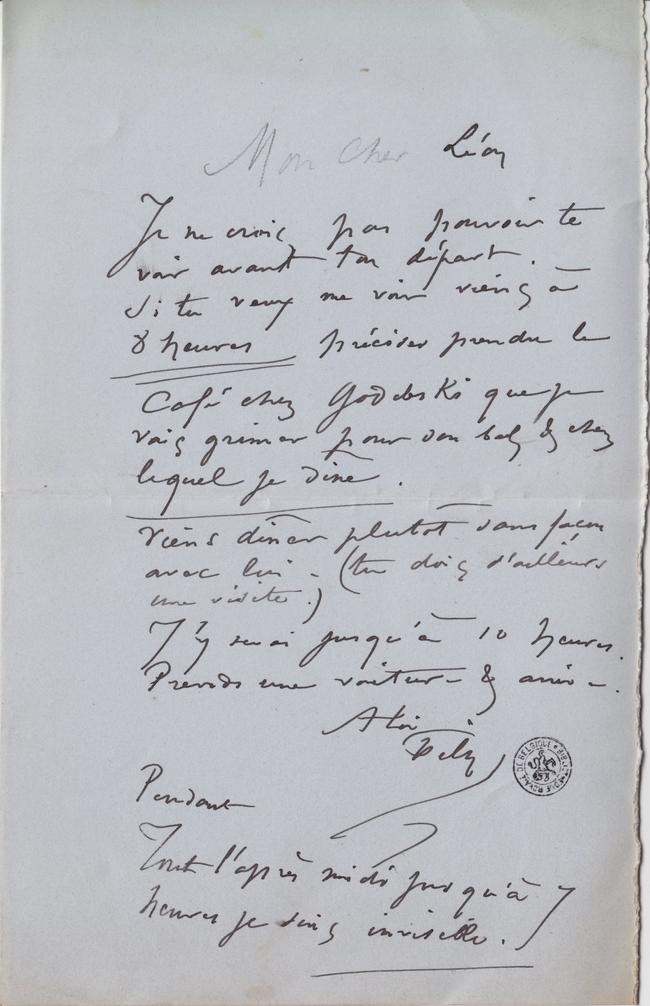 Mon cher Léon
Je ne crois pas pouvoir te
voir avant ton départ.
Si tu veux me voir viens à
8 heures précises prendre le
Café chez Godebski que je
vais grimer pour son bal & chez
lequel je dîne.
Viens dîner plutôt sans façon
avec lui – (tu dois d'ailleurs
une visite.)
J'y serai jusqu'à 10 heures.
Prends une voiture & arrive.
A toi
Fély
BIBLIOTHÈQUE ROYALE DE BELGIQUE
Pendant
Tout l'après midi jusqu'à 7
heures je suis invisible.